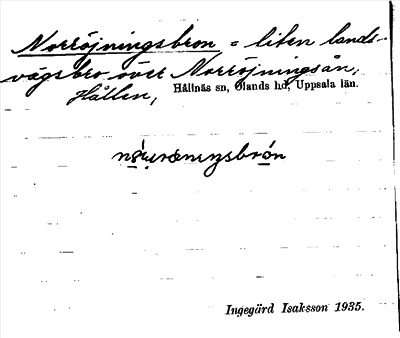 Norröjningsbron = liten lands-
vägsbro över Norröjningsån,
Hållen, Hållnäs sn, Ølands hd, Uppsala län.
Ingegärd Isaksson 1935.